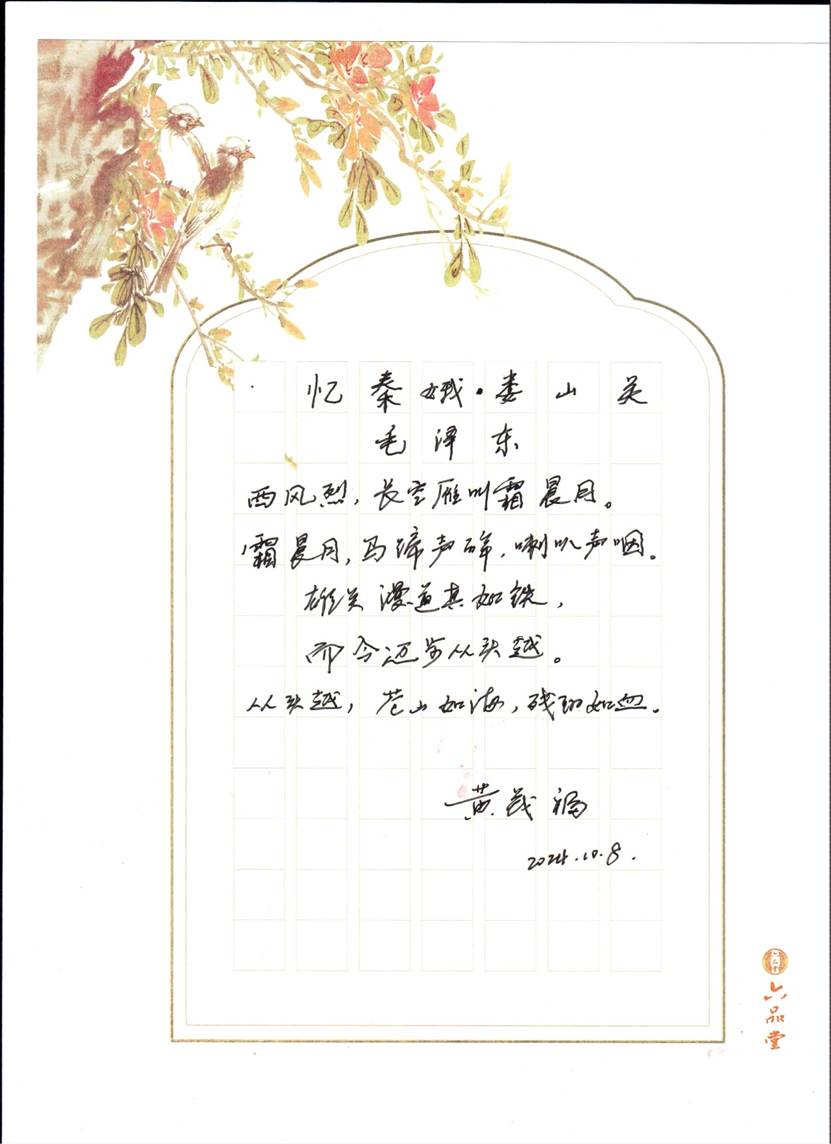 忆秦娥·娄山关
毛泽东
西风烈，长空雁叫霜晨月。
霜晨月，马蹄声碎，喇叭声咽。
雄关漫道真如铁，
而今迈步从头越。
从头越，苍山如海，残阳如血。
黄茂福
2024.10.8.
六品堂